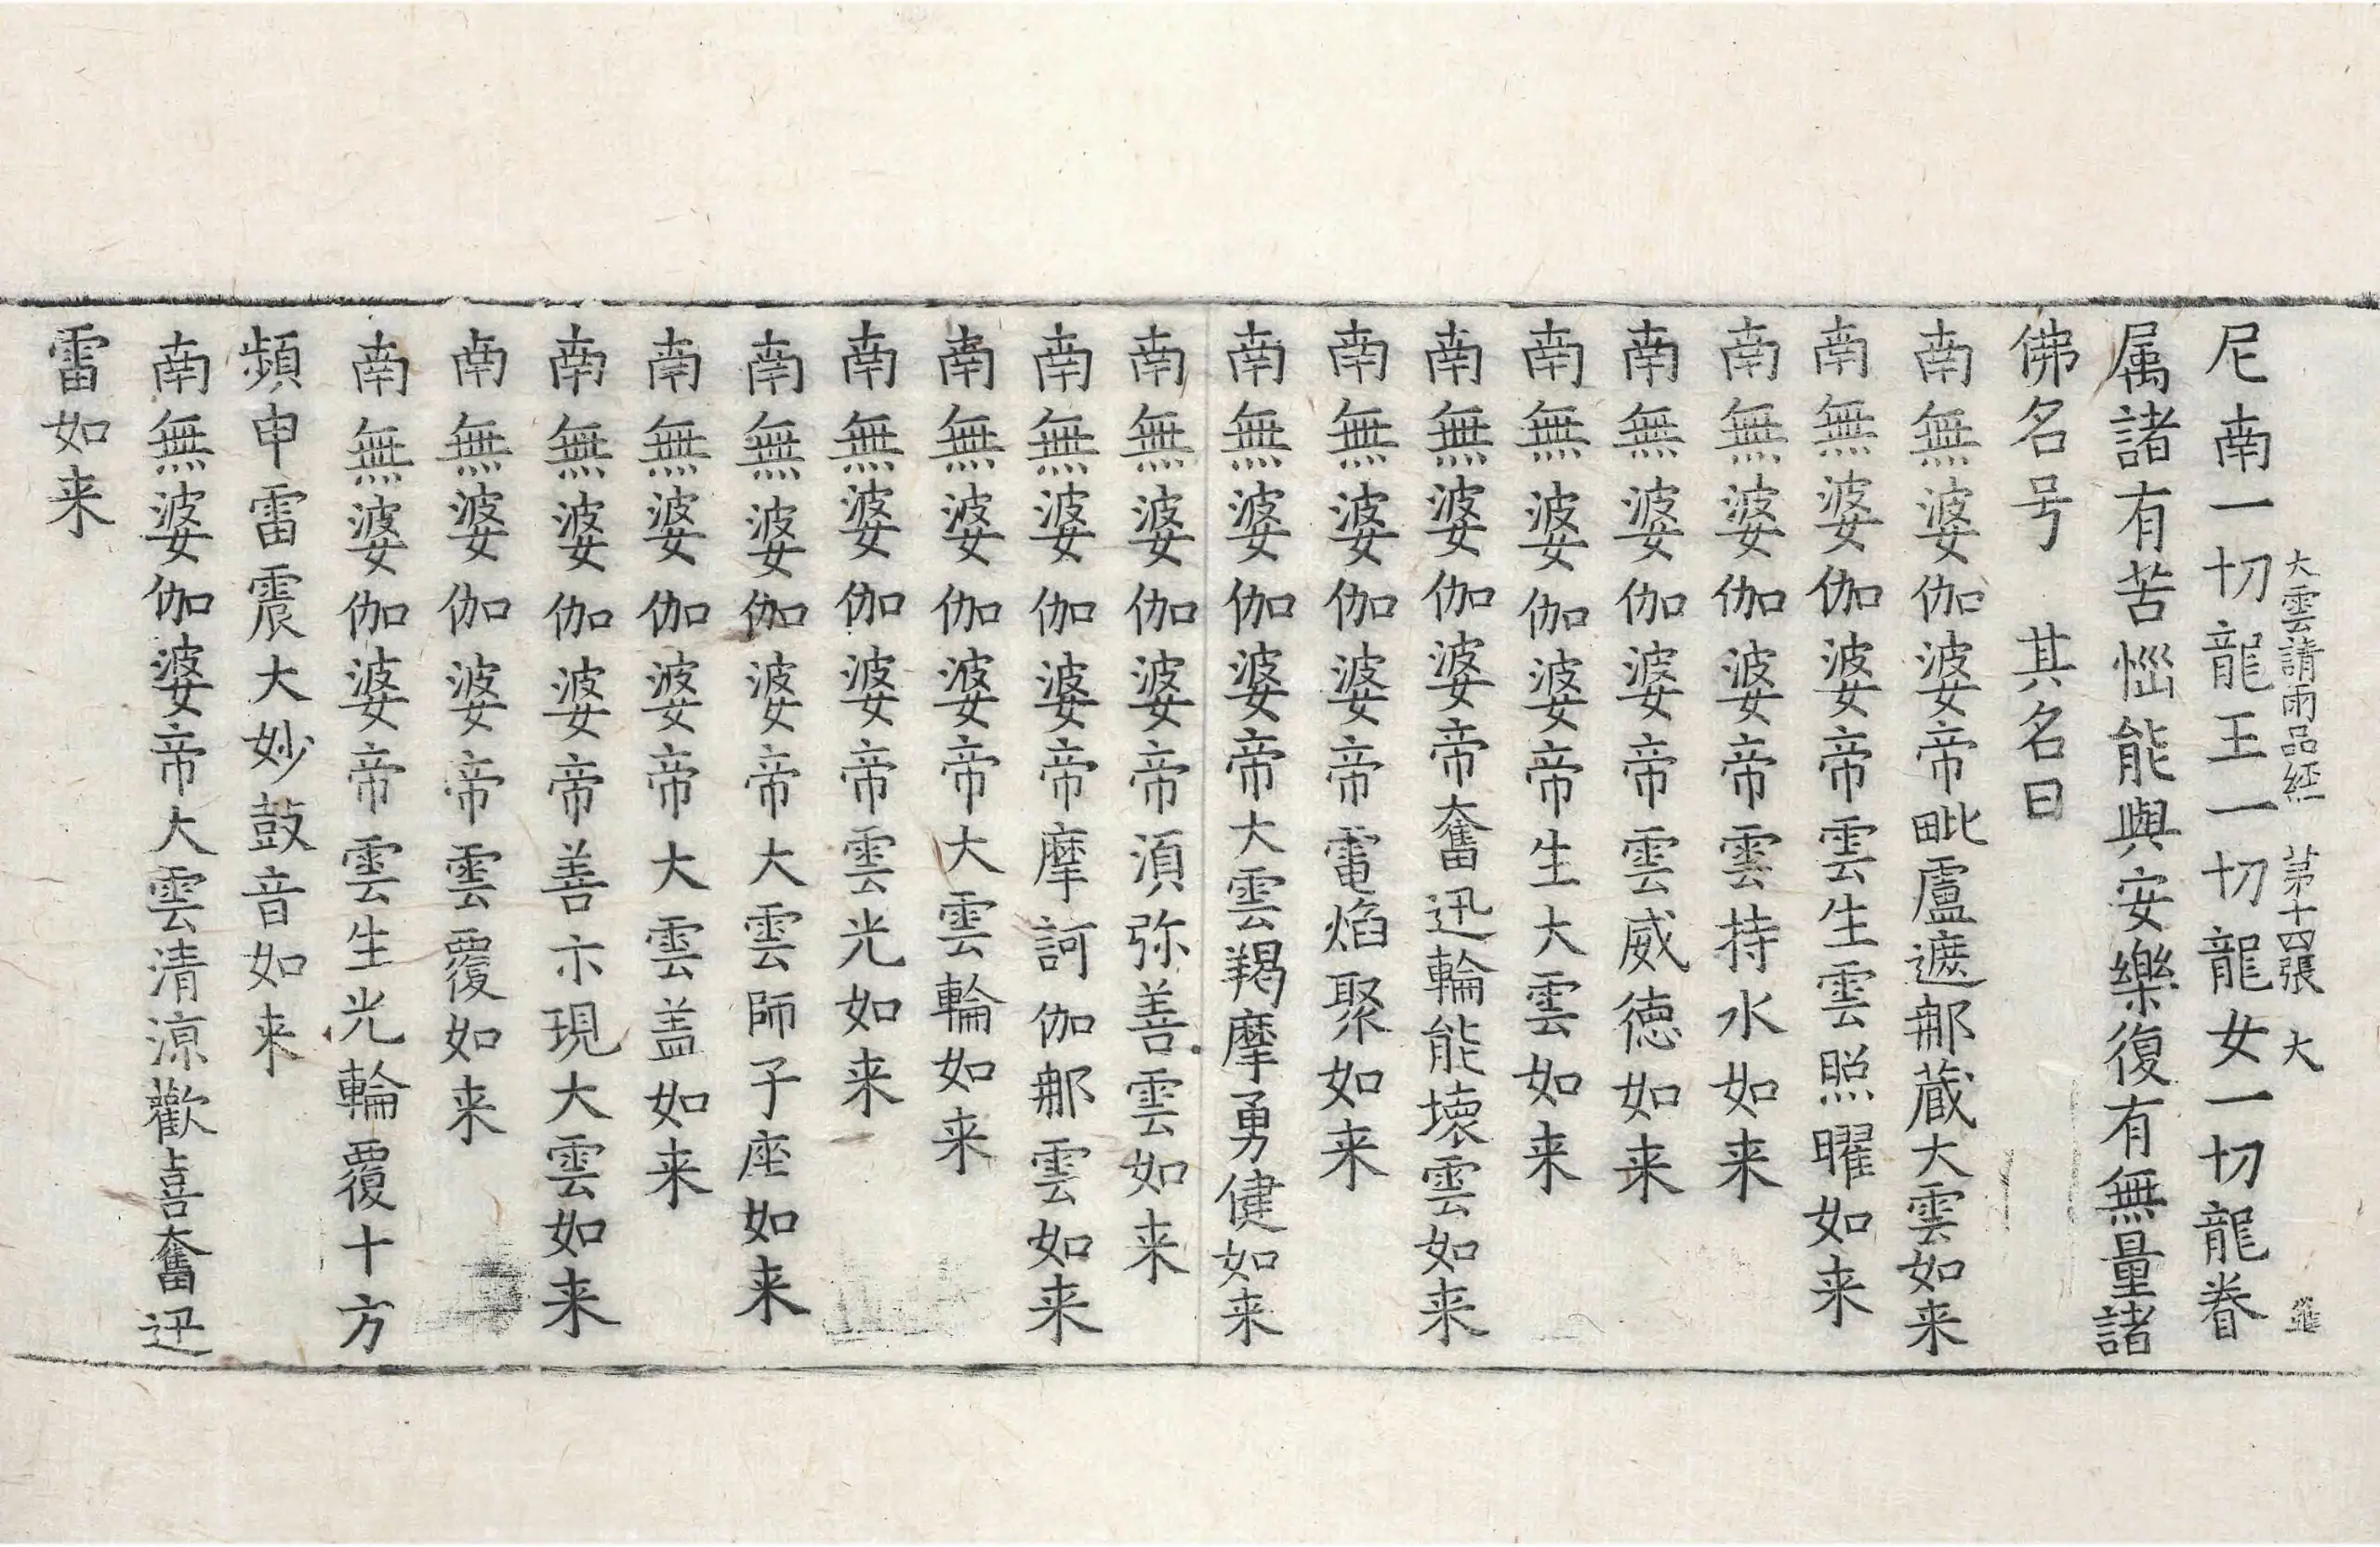 大雲請雨品経 苐十四張 大
尼南一切龍王一切龍女一切龍眷
属諸有苦惱能與安樂復有無量諸
佛名号 其名曰
南無婆伽婆帝毗盧遮那蔵大雲如来
南無婆伽婆帝雲生雲照曜如来
南無婆伽婆帝雲持水如来
南無婆伽婆帝雲威徳如来
南無婆伽婆帝生大雲如来
南無婆伽婆帝奮迅輪能壊雲如来
南無婆伽婆帝電焰聚如来
南無婆伽婆帝大雲羯摩勇健如来
南無婆伽婆帝湏弥善雲如来
南無婆伽婆帝摩訶伽那雲如来
南無婆伽婆帝大雲輪如来
南無婆伽婆帝雲光如来
南無婆伽婆帝大雲師子座如来
南無婆伽婆帝大雲盖如来
南無婆伽婆帝善示現大雲如来
南無婆伽婆帝雲覆如来
南無婆伽婆帝雲生光輪覆十方
頻申雷震大妙鼓音如来
南無婆伽婆帝大雲清涼歡喜奮迅
雷如来